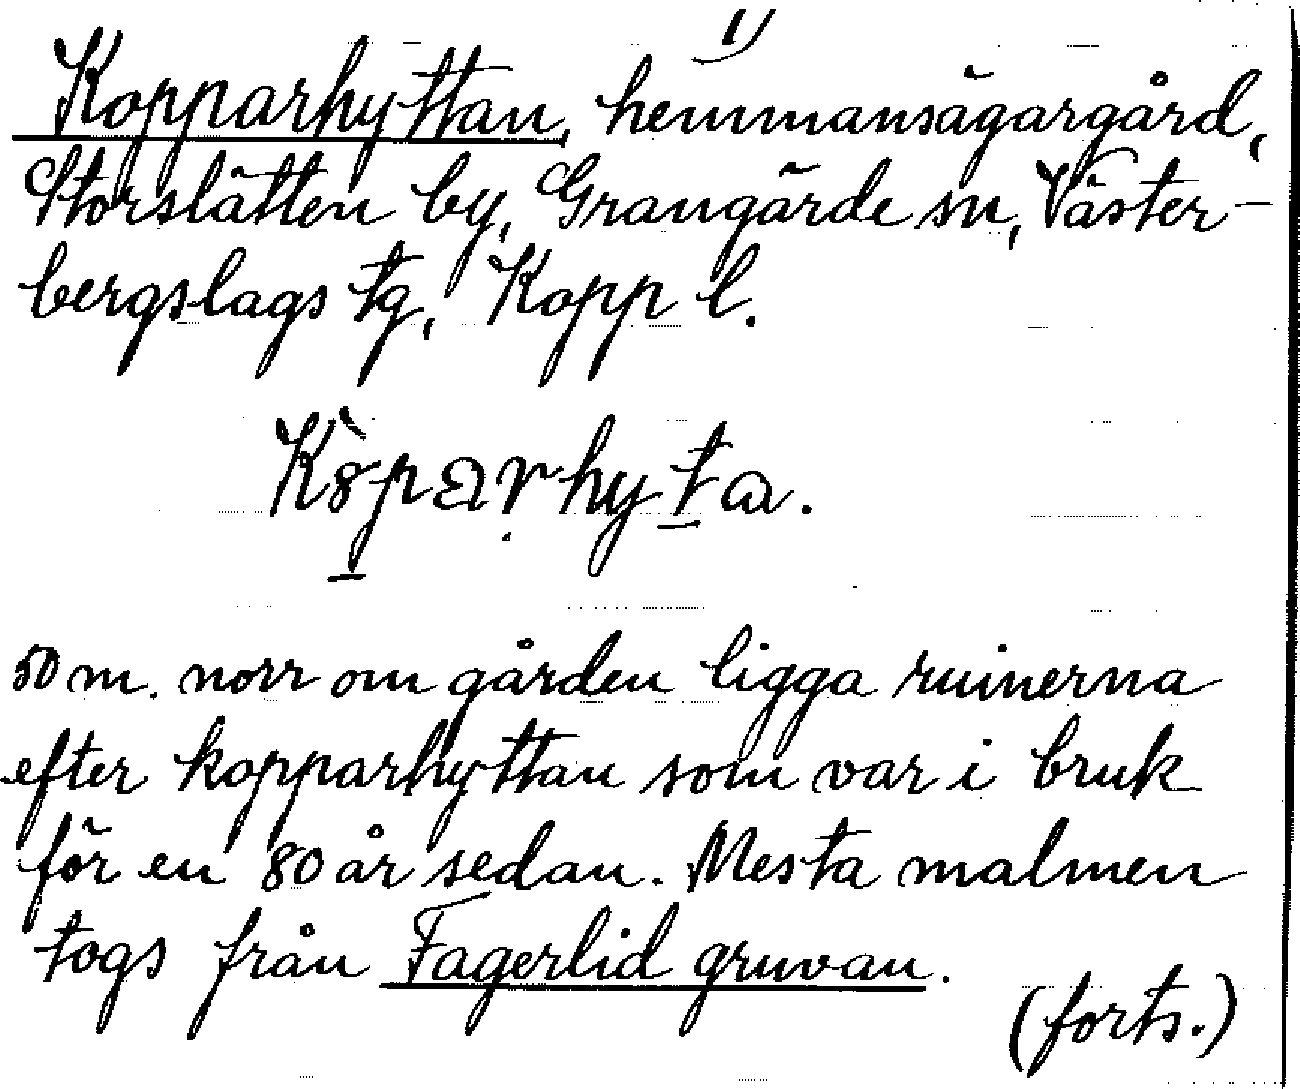 1)
Kopparhyttan, hemmansägargård,
Storslätten by, Grangärde sn, Väster-
bergslags tg, Kopp l.
K8̀p̲arḥyt̲a.
50 m. norr om gården ligga ruinerna
efter kopparhyttan som var i bruk
för en 80 år sedan. Mesta malmen
togs från Fagerlid gruvan.
(forts.)